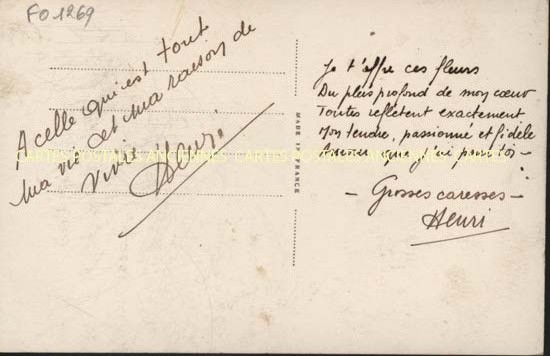 FO 1269
A celle qui est tout
ma vie et ma raison de
vivre
Henri
MADE IN FRANCE
Je t'offre ces fleurs
Du plus profond de mon cœur
Toutes reflètent exactement
Mon tendre, passionné et fidèle
Amour que j'ai pour toi -
- Grosses caresses -
Henri
CARTES POSTALES ANCIENNES CARTES POSTALES ANCIENNES CARTES